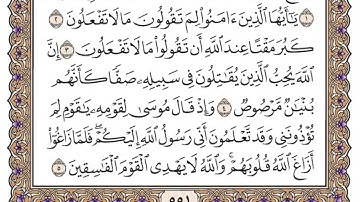 ١ يَٰٓأَيُّهَا ٱلَّذِينَ ءَامَنُوا۟ لِمَ تَقُولُونَ مَا لَا تَفْعَلُونَ ٢
كَبُرَ مَقْتًا عِندَ ٱللَّهِ أَن تَقُولُوا۟ مَا لَا تَفْعَلُونَ ٣ إِنَّ
ٱللَّهَ يُحِبُّ ٱلَّذِينَ يُقَٰتِلُونَ فِى سَبِيلِهِۦ صَفًّا كَأَنَّهُم
بُنْيَٰنٌ مَّرْصُوصٌ ٤ وَإِذْ قَالَ مُوسَىٰ لِقَوْمِهِۦ يَٰقَوْمِ لِمَ
تُؤْذُونَنِى وَقَد تَّعْلَمُونَ أَنِّى رَسُولُ ٱللَّهِ إِلَيْكُمْ ۖ فَلَمَّا زَاغُوٓا۟
أَزَاغَ ٱللَّهُ قُلُوبَهُمْ ۚ وَٱللَّهُ لَا يَهْدِى ٱلْقَوْمَ ٱلْفَٰسِقِينَ ٥